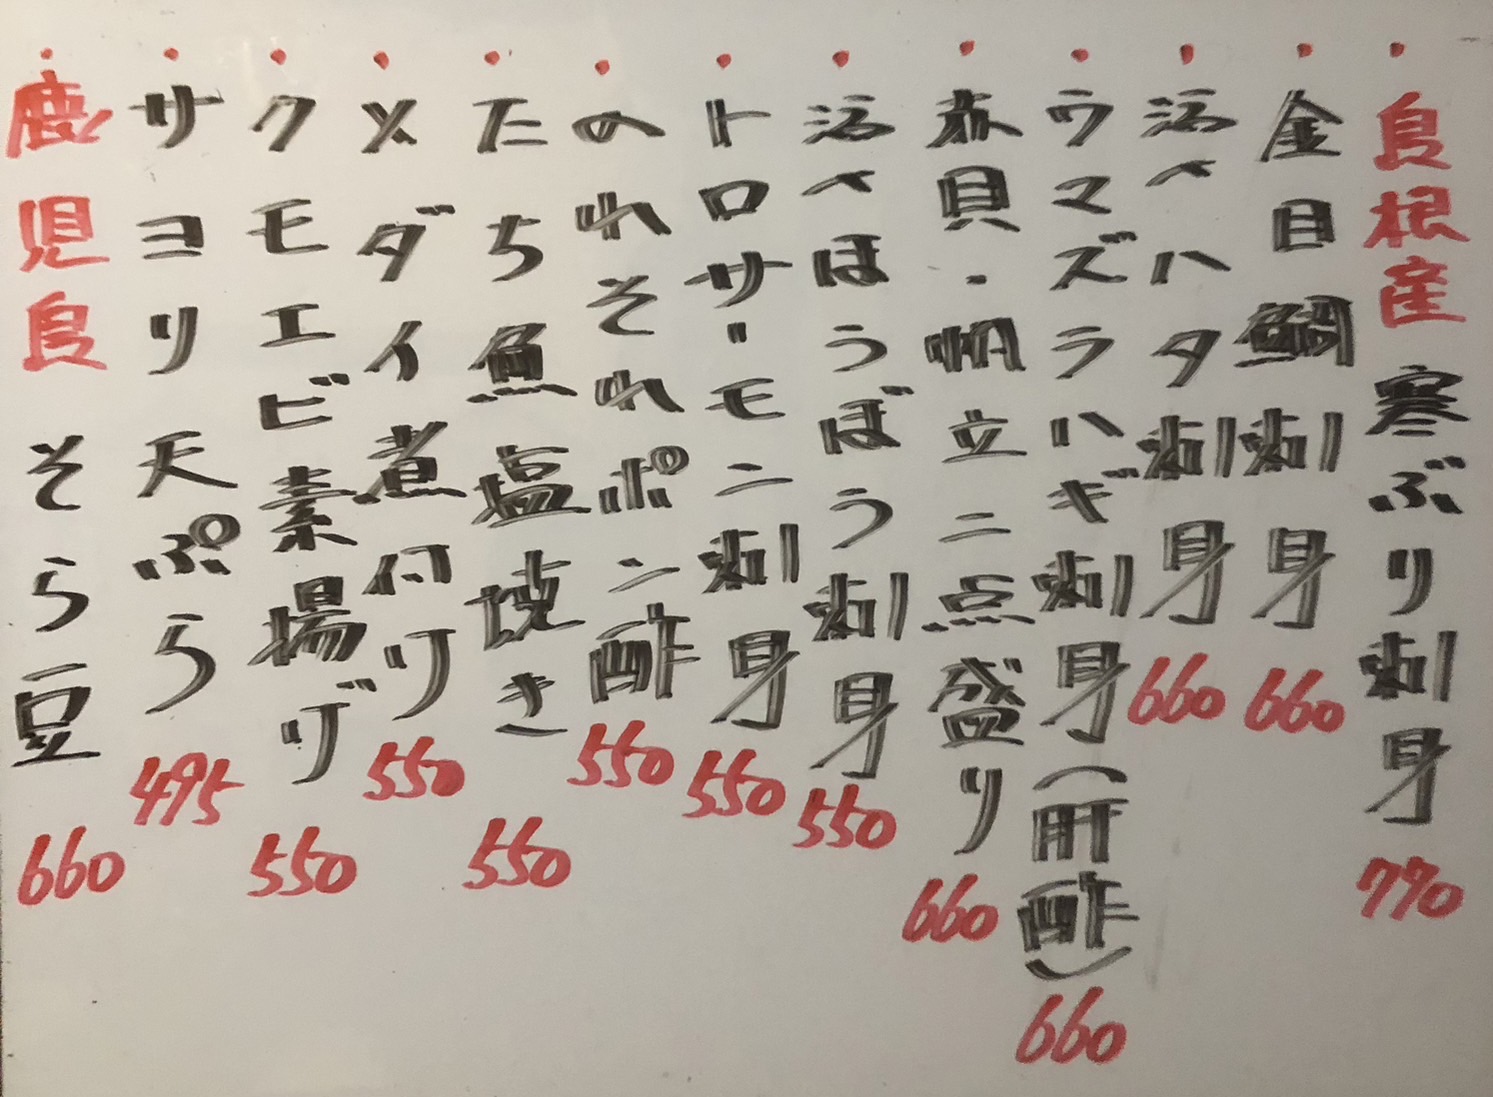 ・島根産 寒ぶり刺身 770
・金目鯛刺身 660
・活〆ハタ刺身 660
・ウマズラハギ刺身(肝酢) 660
・赤貝・帆立二点盛り 660
・活〆ほうぼう刺身 550
・トロサーモン刺身 550
・のれそれポン酢 550
・たち魚塩焼き 550
・メダイ煮付け 550
・クモエビ素揚げ 550
・サヨリ天ぷら 495
・鹿児島 そら豆 660